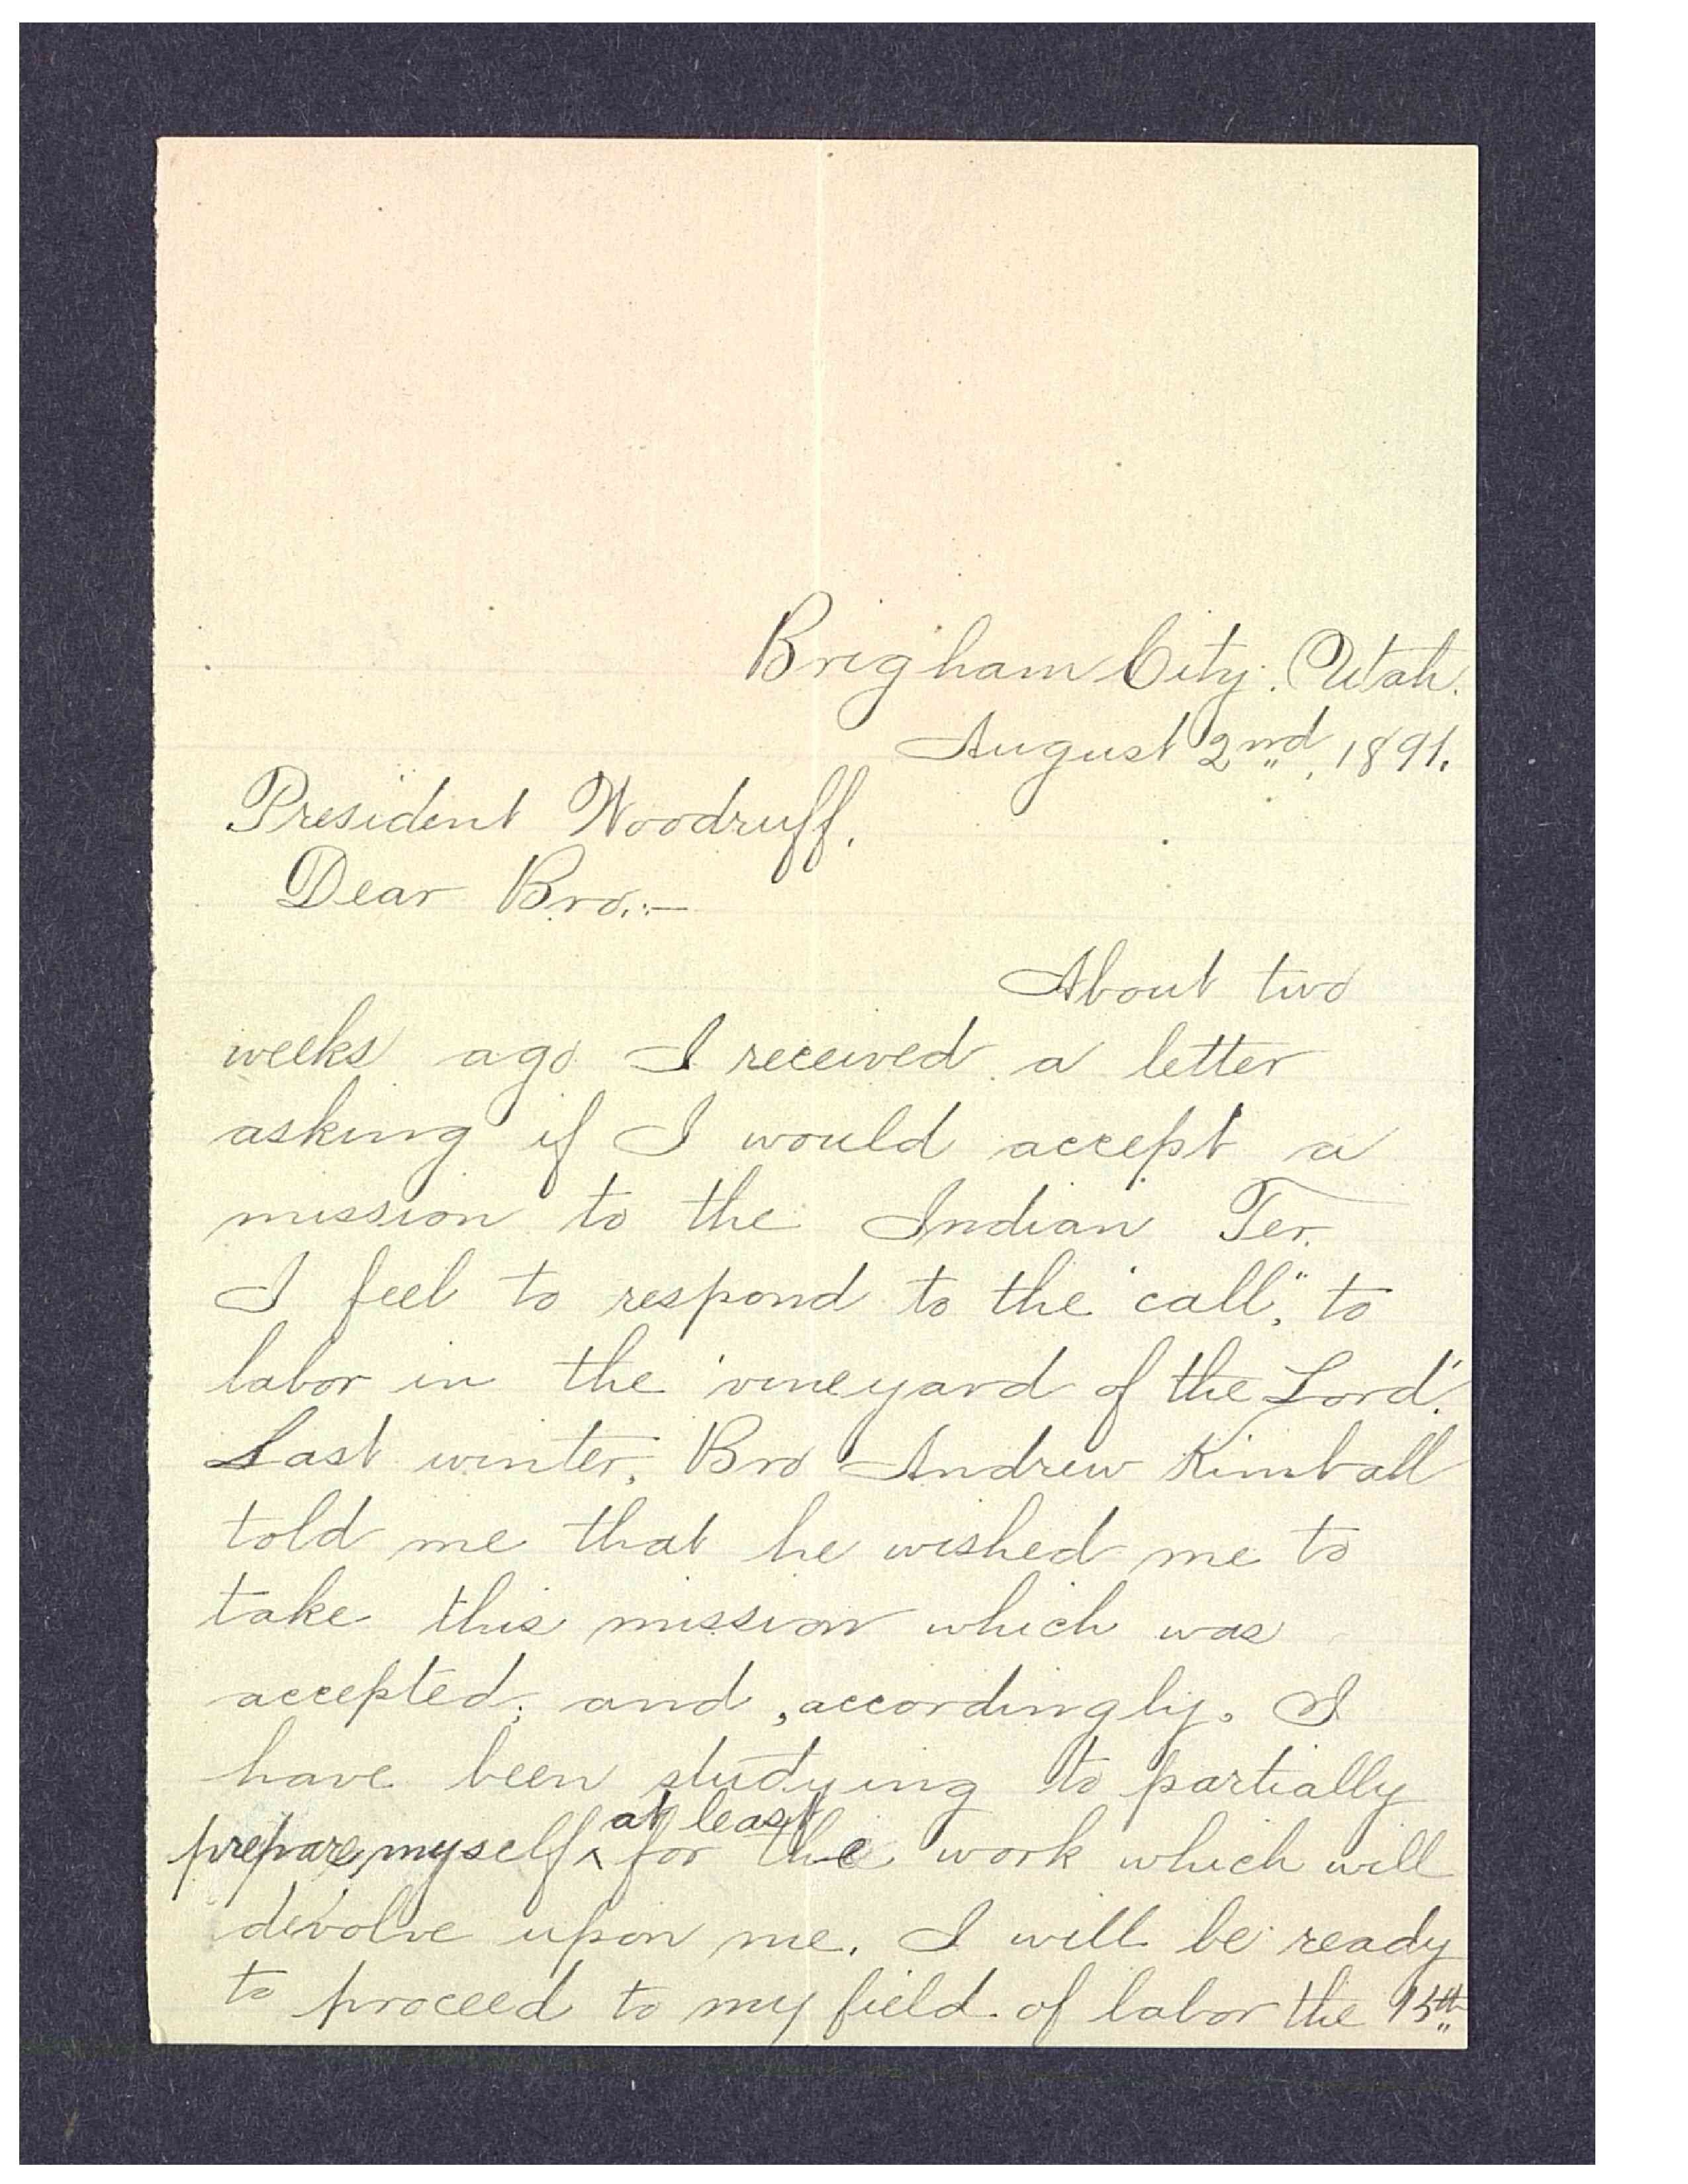 Brigham City. Utah.
August 2nd, 1891.
President Woodruff.
Dear Bro.:—
About two
weeks ago I received a letter
asking if I would accept a
mission to the Indian Ter.
I feel to respond to the "call," to
labor in the "vineyard of the Lord".
Last winter, Bro Andrew Kimball
told me that he wished me to
take this mission which was
accepted; and, accordingly, I
have been studying to partially
at least
prepare myself ^ for the work which will
devolve upon me. I will be ready
to proceed to my field of labor the 15th